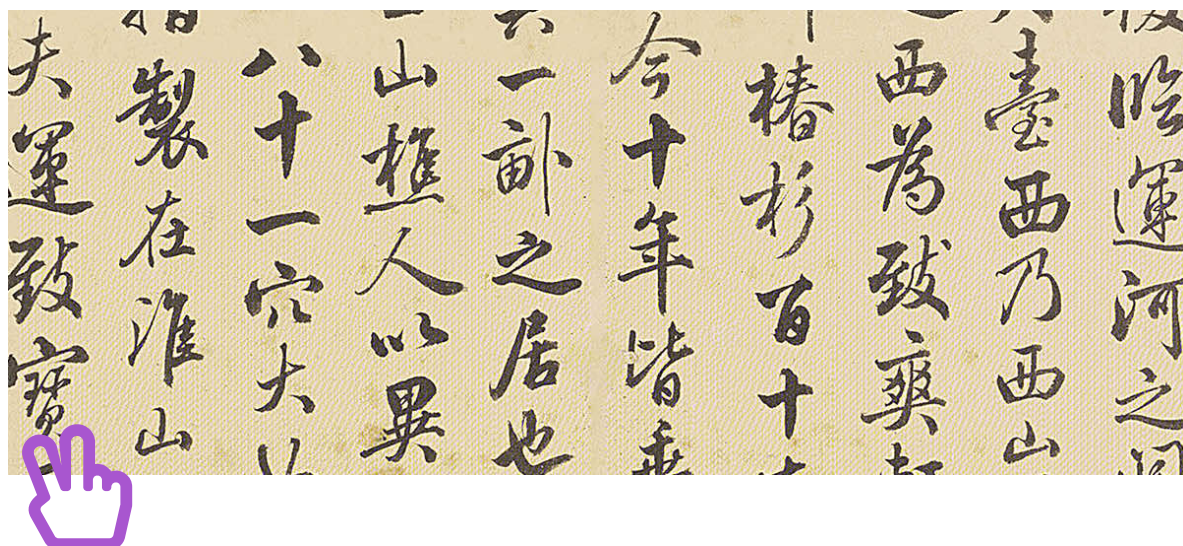 臨運河之
臺西乃西山
西為致爽
椿杉百十
今十年皆垂
一畝之居也
山樵人以異
八十一穴大
製在淮山
夫運致寶